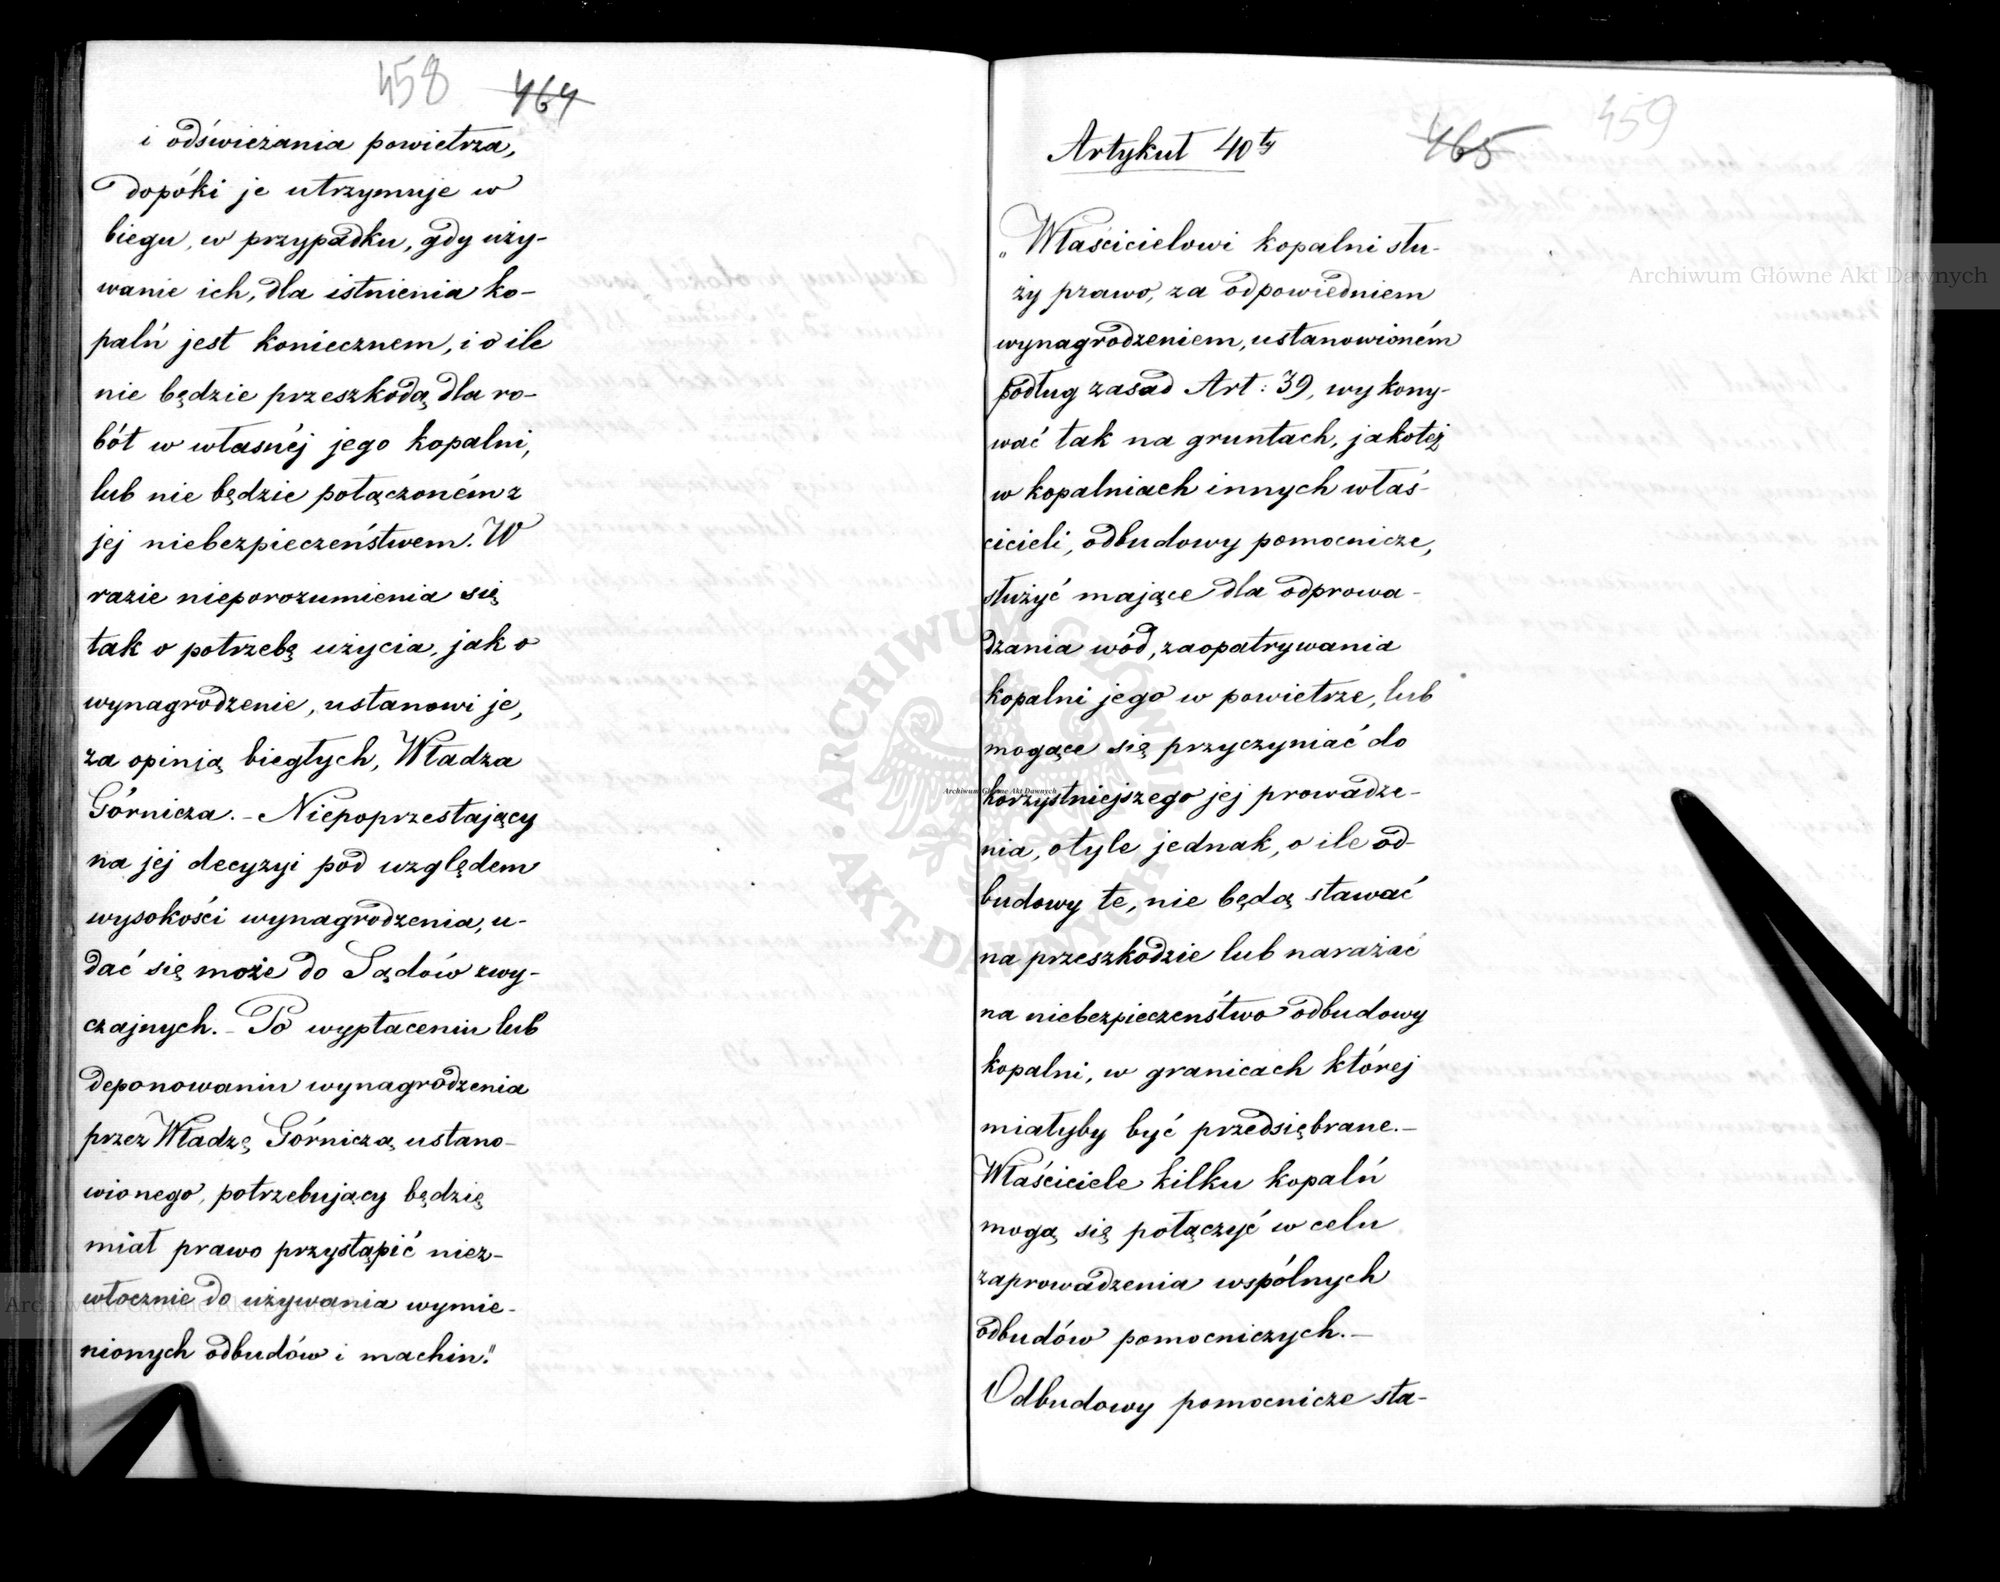 458 464
i odświeżania powietrza,
dopóki je utrzymuje w
biegu, w przypadku, gdy uży-
wanie ich, dla istnienia ko-
palń jest koniecznem, i o ile
nie będzie przeszkodą dla ro-
bót w własnéj jego kopalni,
lub nie będzie połączoném z
jej niebezpieczeństwem. W
razie nieporozumienia się
tak o potrzebę użycia, jak o
wynagrodzenie, ustanowi je,
za opinją biegłych, Władza
Górnicza. – Niepoprzestający
na jej decyzyi pod względem
wysokości wynagrodzenia, u-
dać się może do Sądów zwy-
czajnych. – Po wypłaceniu lub
deponowaniu wynagrodzenia
przez Władzę Górniczą ustano-
wionego, potrzebujący będzię
miał prawo przystąpić niez-
włocznie do używania wymie-
nionych odbudów i machin."
465 459
Artykuł 40ty
„Właścicielowi kopalni słu-
ży prawo, za odpowiedniem
wynagrodzeniem, ustanowioném
podług zasad Art: 39, wykony-
wać tak na gruntach, jakoteż
w kopalniach innych właś-
cicieli, odbudowy pomocnicze,
służyć mające dla odprowa-
dzania wód, zaopatrywania
kopalni jego w powietrze, lub
mogące się przyczyniać do
korzystniejszego jej prowadze-
nia, otyle jednak, o ile od-
budowy te, nie będą stawać
na przeszkodzie lub narażać
na niebezpieczeństwo odbudowy
kopalni, w granicach której
miałyby być przedsiębrane. –
Właściciele kilku kopalń
mogą się połączyć w celu
zaprowadzenia wspólnych
odbudów pomocniczych. –
Odbudowy pomocnicze sta-
Archiwum Główne Akt Dawnych
Archiwum Główne Akt Dawnych
Archiwum Główne Akt Dawnych
ARCHIWUM GŁÓWNE · AKT DAWNYCH ·